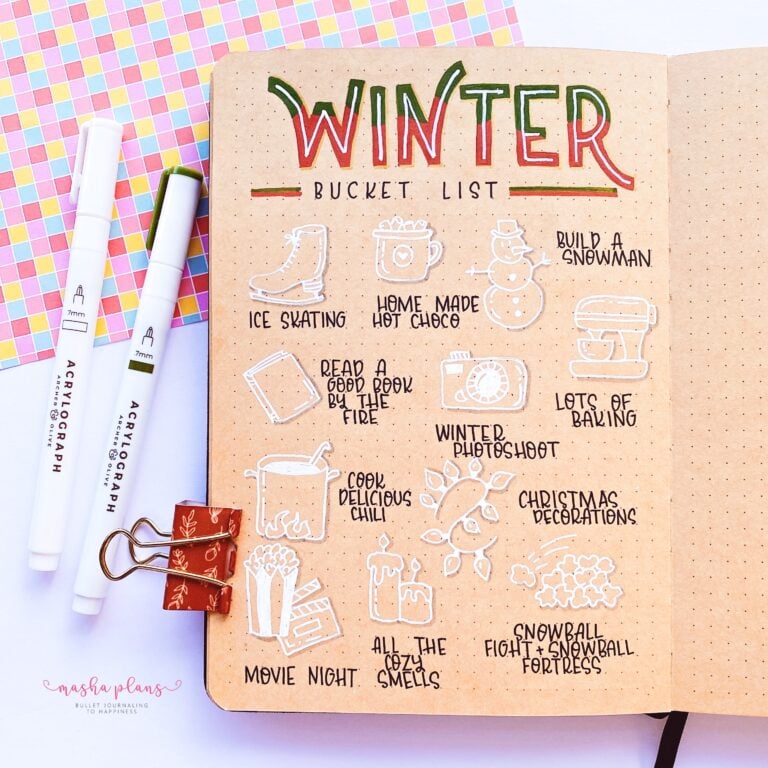 WINTER
BUCKET LIST
ICE SKATING
HOME MADE
HOT CHOCO
BUILD A
SNOWMAN
READ A
GOOD BOOK
BY THE
FIRE
WINTER
PHOTOSHOOT
LOTS OF
BAKING
COOK
DELICIOUS
CHILI
CHRISTMAS
DECORATIONS
MOVIE NIGHT
ALL THE
COZY
SMELLS
SNOWBALL
FIGHT + SNOWBALL
FORTRESS
.7mm
ACRYLOGRAPH
ARCHER & OLIVE
.7mm
ACRYLOGRAPH
ARCHER & OLIVE
masha plans
BULLET JOURNALING
TO HAPPINESS